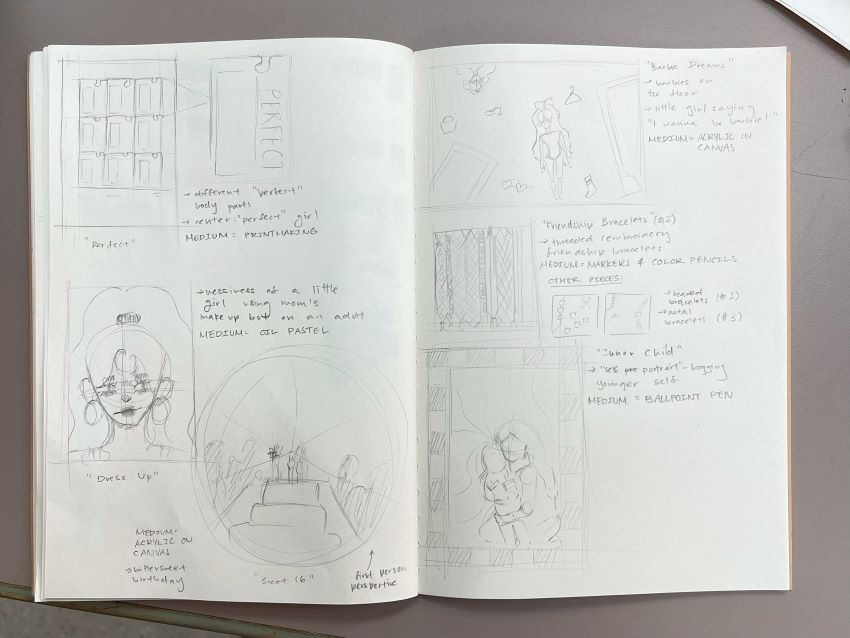 PERFECT
→ different "perfect"
body parts
→ center: "perfect" girl
MEDIUM = PRINTMAKING
"Perfect"
→ messiness of a little
girl using mom's
makeup but on an adult
MEDIUM = OIL PASTEL
"Dress Up"
MEDIUM=
ACRYLIC ON
CANVAS
→ bittersweet
birthday
"Sweet 16"
first person
perspective
"Barbie Dreams"
→ barbies on
the floor
→ little girl saying
"I wanna be barbie!"
MEDIUM = ACRYLIC ON
CANVAS
"Friendship Bracelets" (#2)
→ threaded/emboidery
friendship bracelets
MEDIUM = MARKERS & COLOR PENCILS
OTHER PIECES:
→ beaded
bracelets (#1)
→ metal
bracelets (#3)
"Inner Child"
→ "self portrait" - hugging
younger self
MEDIUM = BALLPOINT PEN